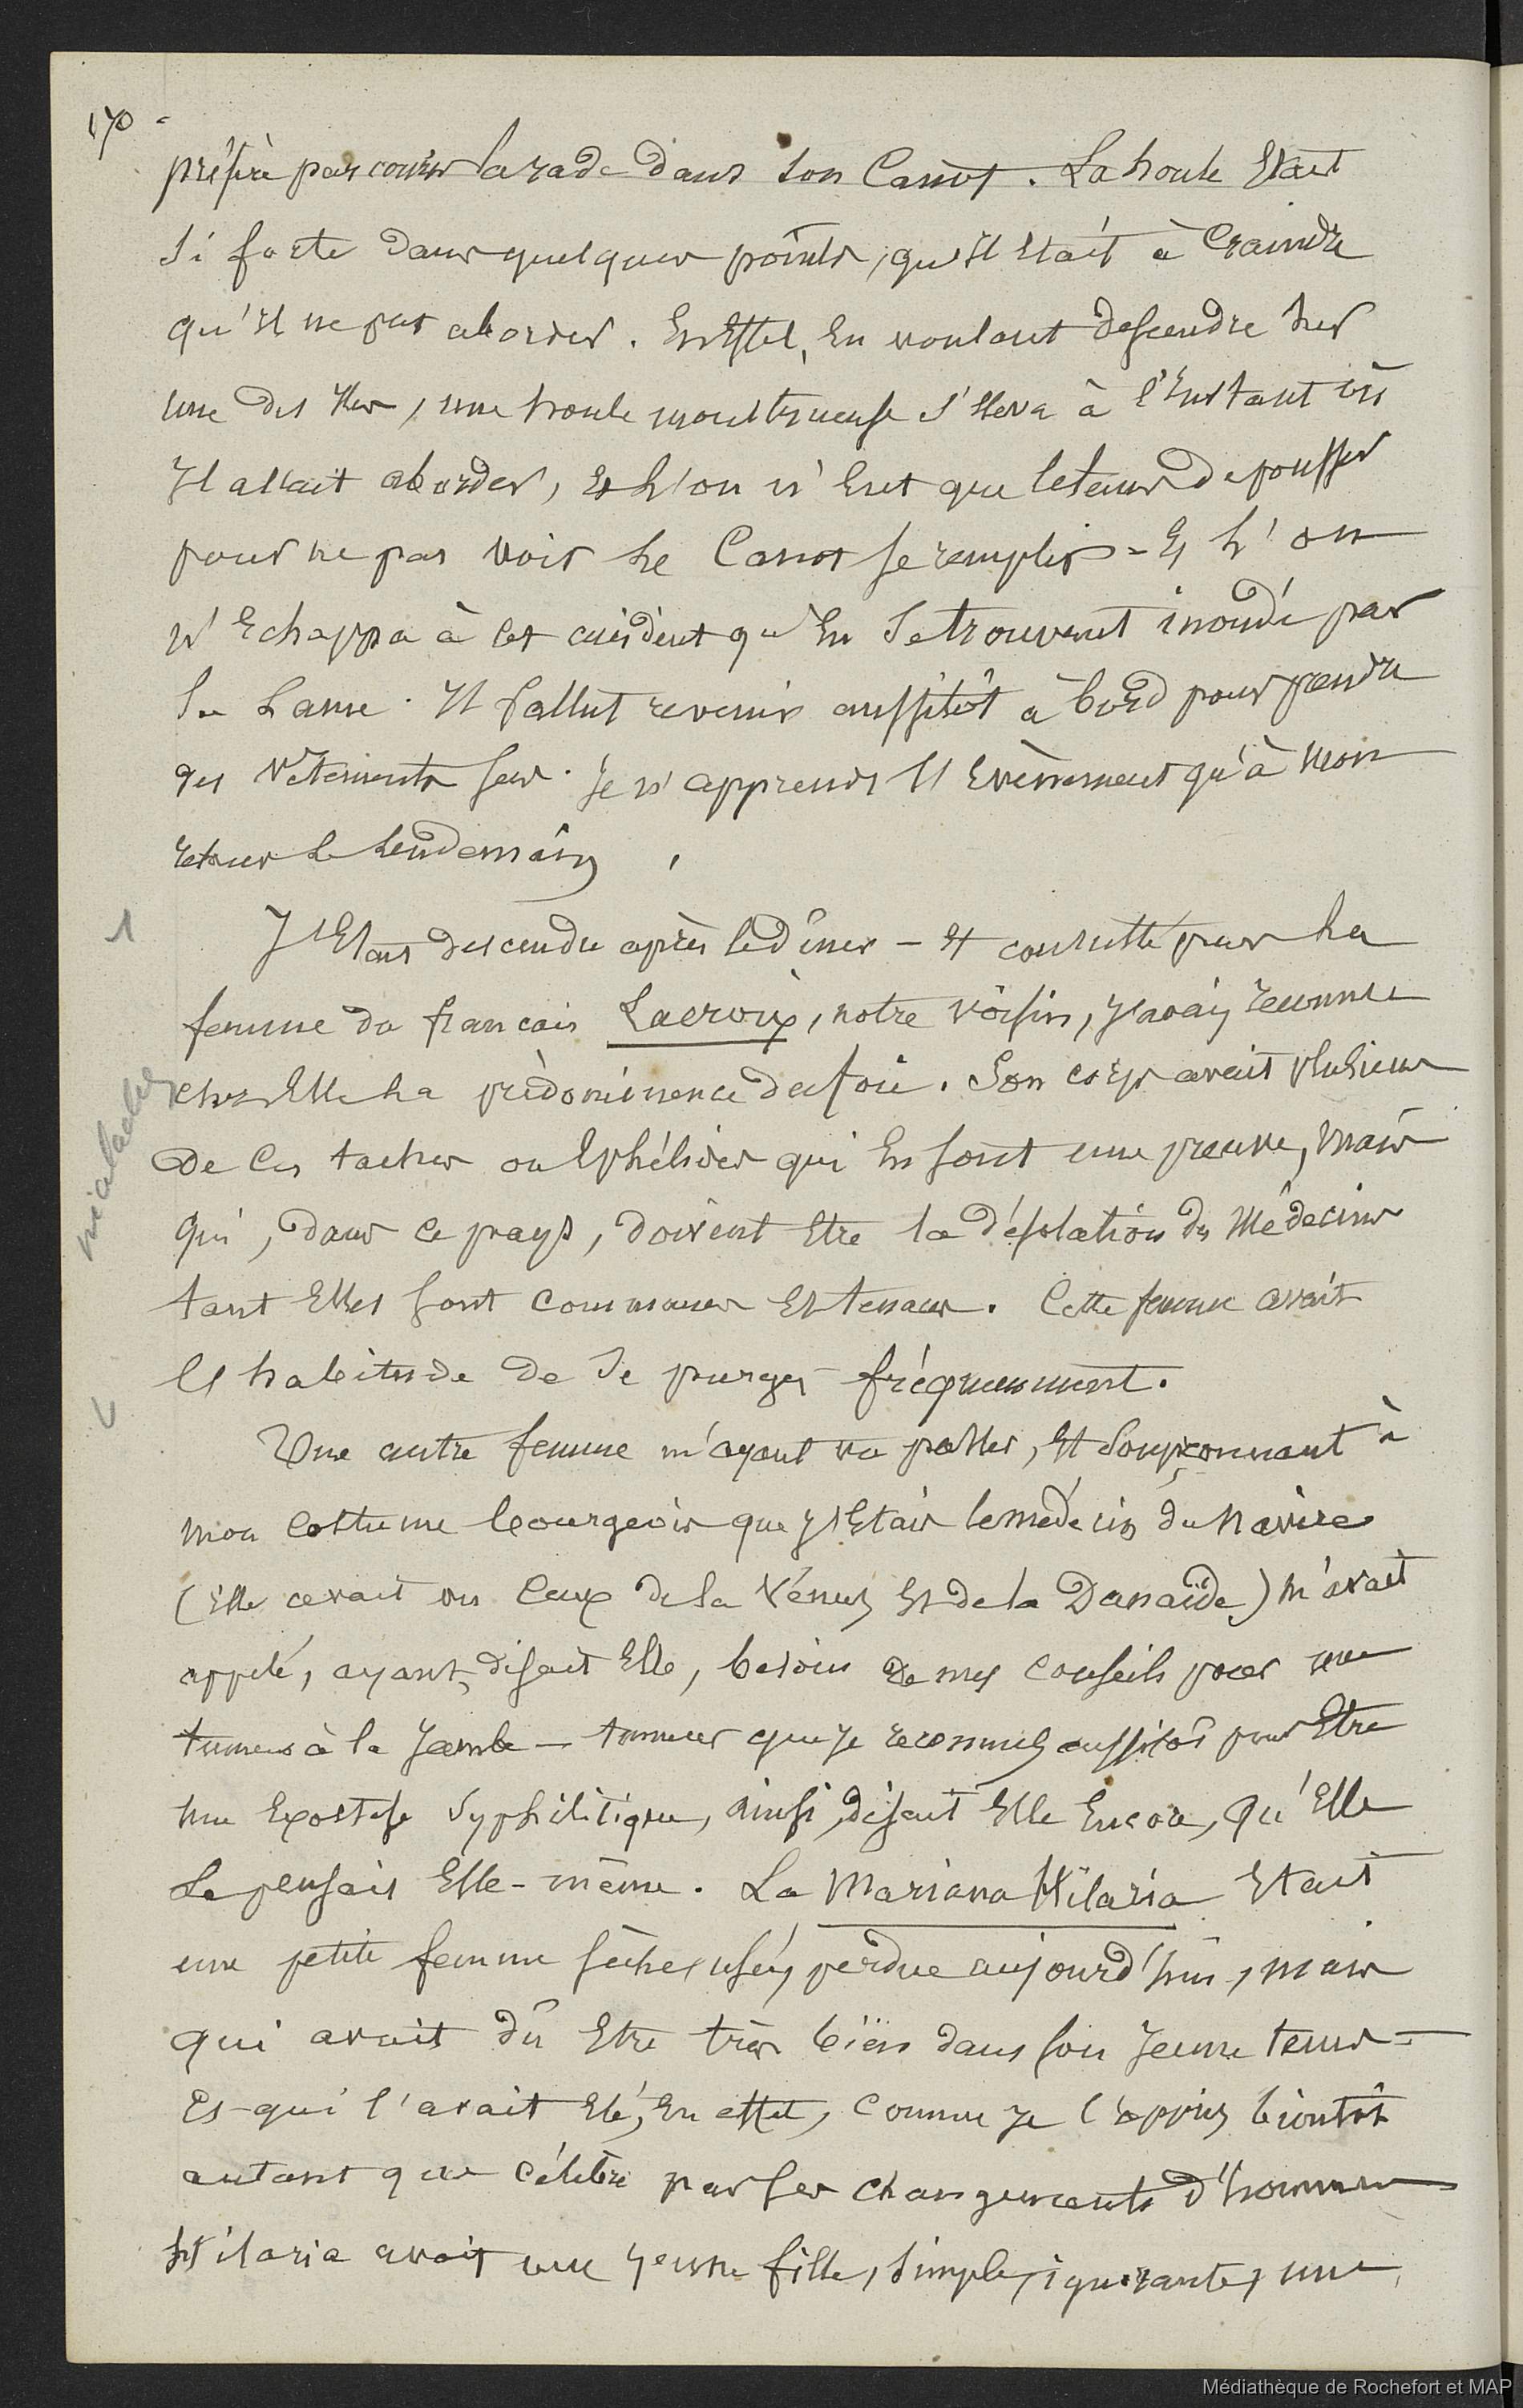 170
préféré parcourir la rade dans son Canot. La houle Etait
si forte dans quelques points, qu'il Etait à Craindre
qu'il ne put aborder. En Effet, En voulant descendre sur
une des Iles, une houle monstrueuse s'éleva à l'Instant où
Il allait aborder, Et l'on n'Eut que le temps de pousser
pour ne pas voir le Canot se remplir - Et l'on
n'Echappa à cet accident qu'En se trouvant inondé par
la Lame. Il fallut revenir aussitôt à bord pour prendre
des Vêtements secs. Je n'appris l'Evènement qu'à mon
retour le lendemain.
1
J'Etais descendu après le dîner - Et consulté par la
femme du francais Lacroix, notre voisin, J'avais reconnu
chez Elle la prédominence du foie. Son corps avait plusieurs
maladies
de ces taches ou Ephélides qui En sont une preuve, mais
qui, dans ce pays, doivent Etre la désolation des Médecins
tant Elles sont communes Et tenaces. Cette femme avait
l'habitude de se purger fréquemment.
Une autre femme m'ayant vu passer, Et soupçonnant à
mon costume bourgeois que J'Etais le médecin du Navire
(Elle avait vu Ceux de la Vénus Et de la Danaïde) m'avait
appelé, ayant, disait Elle, besoin de mes Conseils pour une
tumeur à la Jambe - tumeur que je reconnus aussitôt pour Etre
une Exostose Syphilitique, ainsi, disait Elle Encore, qu'Elle
le pensait Elle-même. La Mariana Hilaria Etait
une petite femme sèche, usée, perdue aujourd'hui, mais
qui avait dû Etre très bien dans son Jeune temps -
Et qui l'avait Eté, En effet, comme je l'appris bientôt
autant que célèbre par ses changements d'hommes
Hilaria avait une Jeune fille, simple, ignorante, une